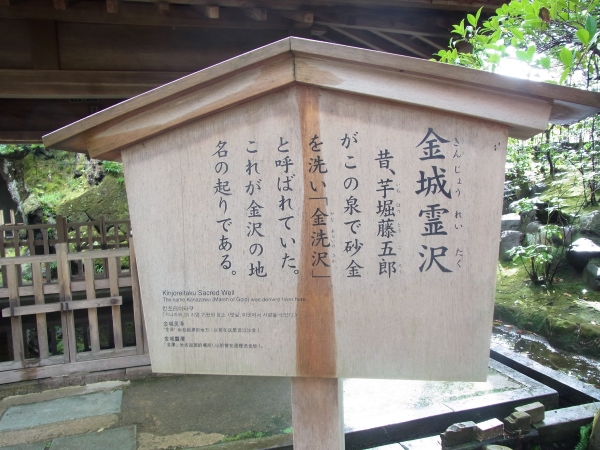 金城霊沢
きんじょうれいたく
昔、芋堀藤五郎
がこの泉で砂金
を洗い「金洗沢」
と呼ばれていた。
これが金沢の地
名の起りである。
Kinjoreitaku Sacred Well
The name Kanazawa (Marsh of Gold) was derived from here.
킨죠레이타쿠
金城灵泽
金城靈澤